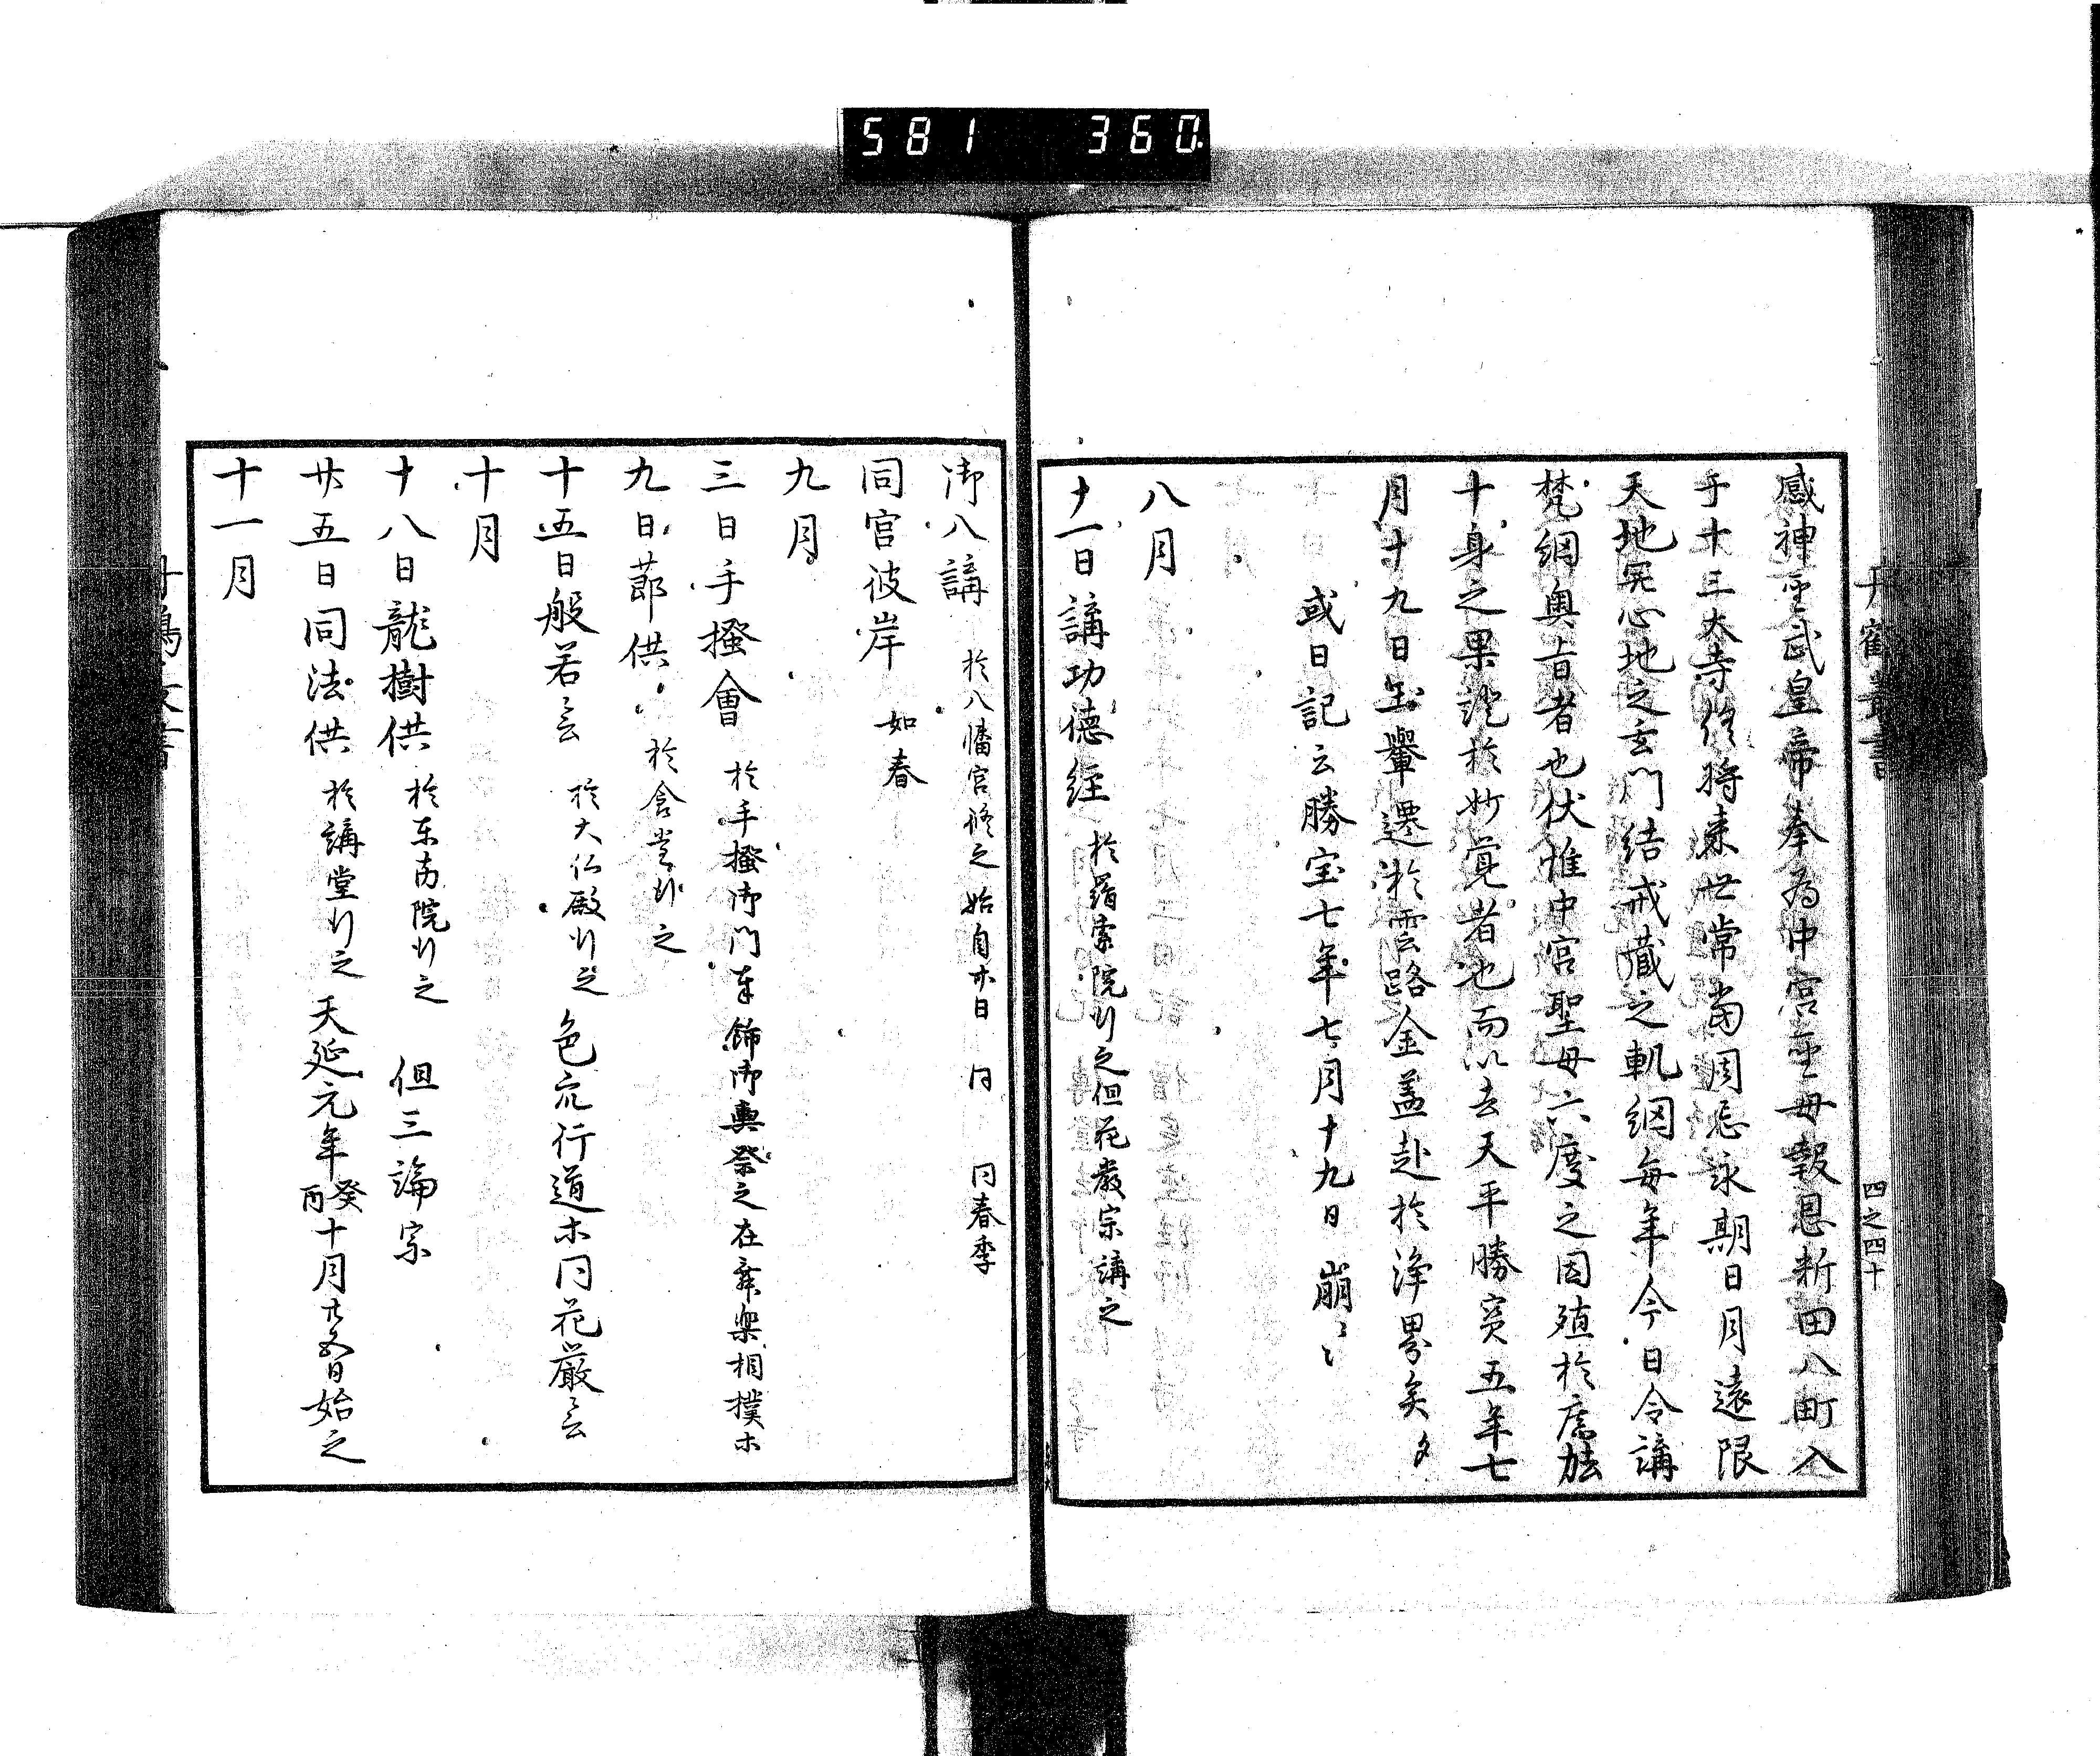 581 360
丹鶴叢書
四之四十
感神聖武皇帝奉為中宮聖母報恩新田八町入
于十三大寺終將来世常當周忌永期日月遠限
天地冥心地之玄門結戒藏之軌網每年今日令講
梵網奥旨者也伏惟中宮聖母六度之因殖於
十身之果證於妙覚者也而以去天平勝寶五年七
月十九日玉輦遷於雲路金盖赴於浄界矣
或日記云勝宝七年七月十九日崩〻
八月
十一日講功徳経 於羂索院行之但花嚴宗講之
御八講 於八幡宮修之 始自廿日 同 同春季
同宮彼岸 如春
九月
三日手掻會 於手掻御門奉餝御輿祭之在舞楽相撲木
九日節供 於食堂行之
十五日般若会 於大仏殿行之 色衆行道木同花厳会
十月
十八日龍樹供 於东南院行之 但三論宗
廿五日同法供 於講堂行之 天延元年癸酉十月廿五日始之
十一月